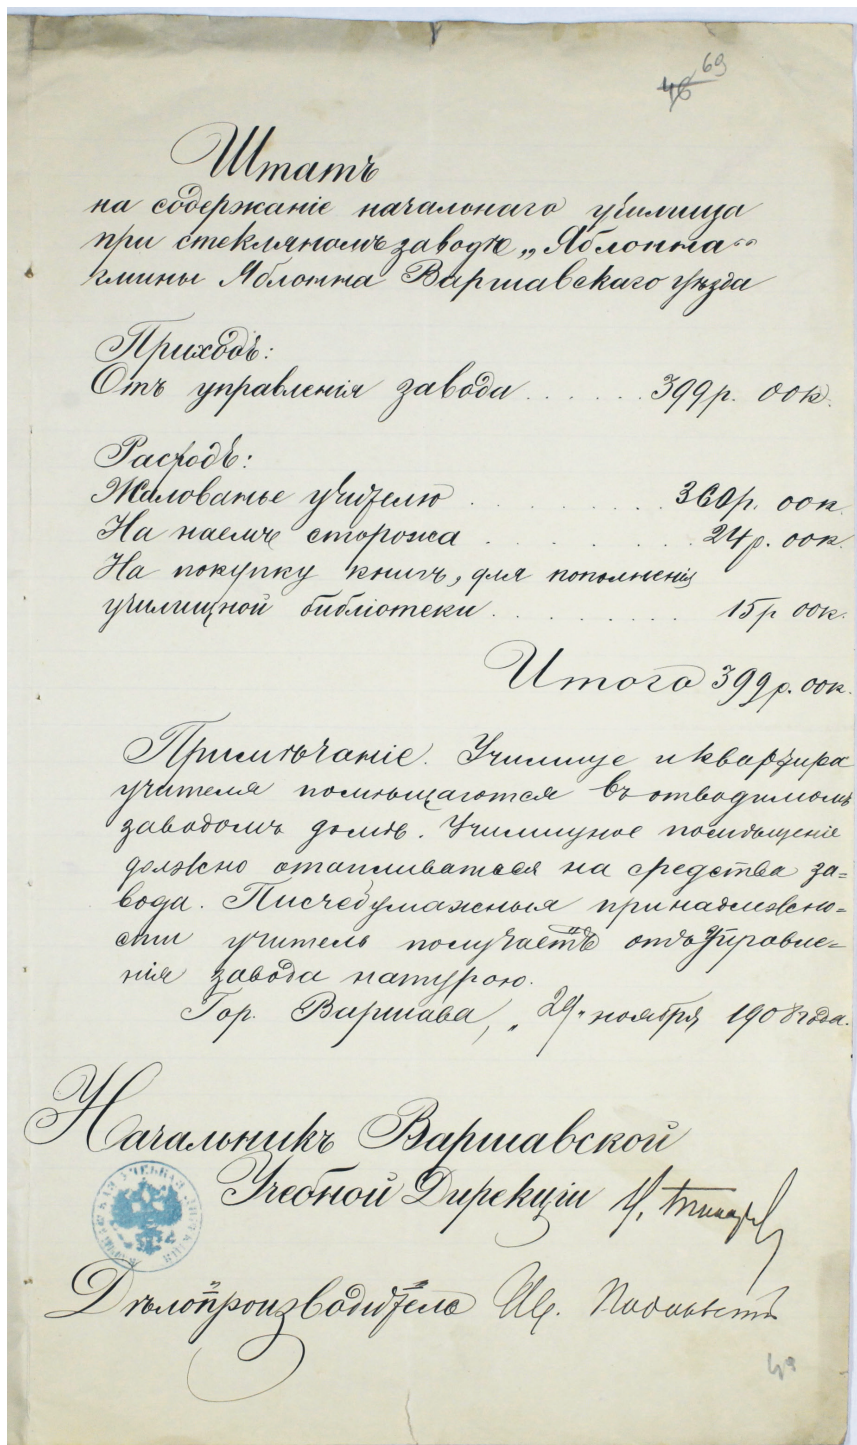 69
46
Штатъ
на содержаніе начальнаго училища
при стекляномъ заводѣ „Яблонна"
гмины Яблонна Варшавскаго уѣзда
Приходъ:
Отъ управленія завода . . . . . . 399 р. 00 к.
Расходъ:
Жалованье учителю . . . . . . . . 360 р. 00 к.
На наемъ сторожа . . . . . . . . 24 р. 00 к.
На покупку книгъ, для пополненія
училищной библіотеки . . . . . . . . 15 р 00 к.
Итого 399 р. 00 к.
Примѣчаніе. Училище и квартира
учителя помѣщаются въ отводимомъ
заводомъ домѣ. Училищное помѣщеніе
должно отапливаться на средства за=
вода. Писчебумажныя принадлежно=
сти учитель получаетъ отъ Управле=
нія завода натурою.
Гор. Варшава, „29" ноября 1908 года.
Начальникъ Варшавской
Учебной Дирекціи
УЧЕБНАЯ
Дѣлопроизводитель
49